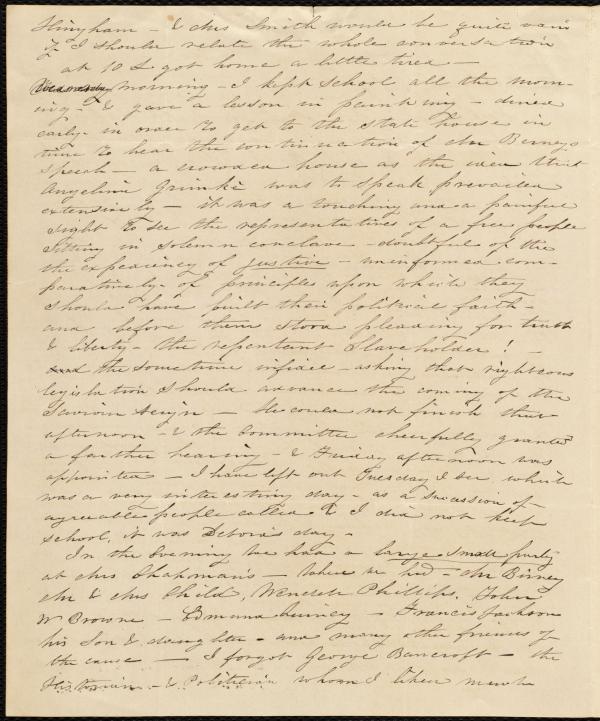 Hingham — & Mrs Smith would be quite vain
if I should relate the whole conversation
at 10 I got home a little tired —
morning — I kept school all the morn-
ing — & gave a lesson in painting — dined
early in order to get to the State house in
time to hear the continuation of Mr Birneys
Speech — a crowded house as the idea that
Angelina Grimké was to speak prevailed
extensively — it was a touching and a painful
sight to see the representatives of a free people
sitting in solemn conclave — doubtful of the
the expediency of justice — uninformed com-
paratively of principles upon which they
should have built their political faith —
and before them stood pleading for truth
& liberty — the repentant Slaveholder! —
the sometime infidel — asking that righteous
legislation should advance the coming of the
Saviours reign — He could not finish that
afternoon — & the Committee cheerfully granted
a farther hearing — & Friday afternoon was
appointed — I have left out Tuesday I see, which
was a very interesting day — as a sucession of
agreeable people called & I did not keep
school, it was Deboras day —
In the Evening we had a large small party
at Mrs Chapmans — when we had — Mr Birney
Mr & Mrs Child, Wendell Phillips, John
W Browne — Edmund Quincy — Francis Jackson
his Son & daughter — and many other friends of
the cause — I forgot George Bancroft — the
Historian — & Politician whom I liken